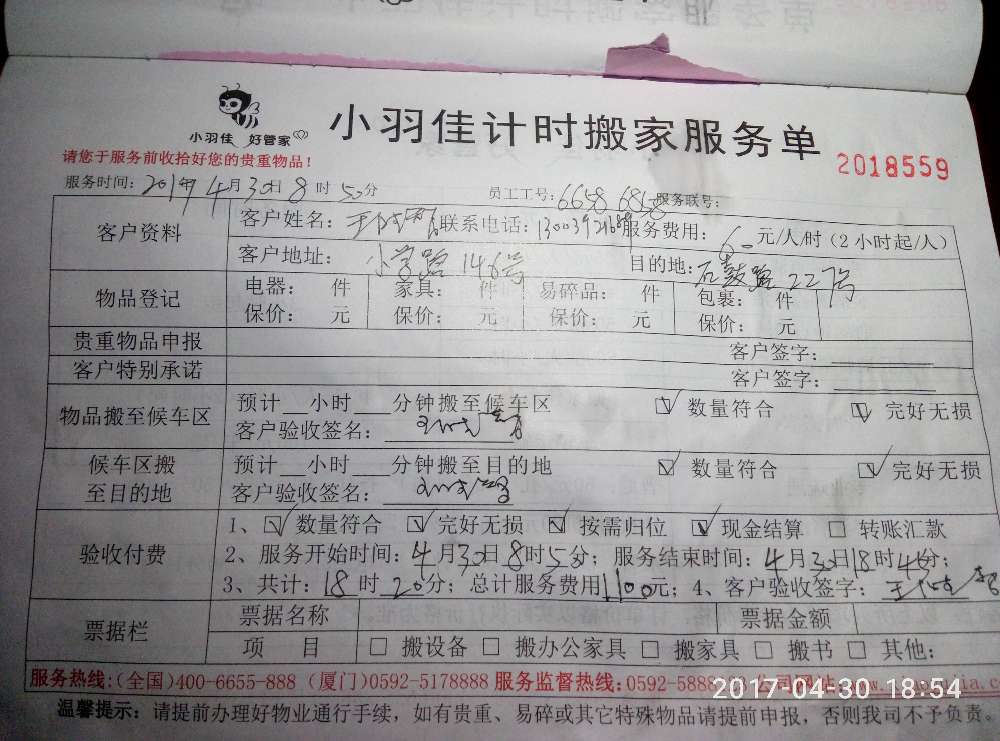 小羽佳 好管家
小羽佳计时搬家服务单
2018559
请您于服务前收拾好您的贵重物品！
服务时间：2017年4月30日8时50分 员工工号：6658 服务联号：
客户资料
客户姓名： 联系电话： 服务费用：60元/人/时（2小时起/人）
客户地址：小学路146号 目的地：石鼓路227号
物品登记
电器： 件 家具： 件 易碎品： 件 包裹： 件
保价： 元 保价： 元 保价： 元 保价： 元
贵重物品申报 客户签字：
客户特别承诺 客户签字：
物品搬至候车区
预计__小时___分钟搬至候车区 ☑ 数量符合 ☑ 完好无损
客户验收签名：
候车区搬至目的地
预计__小时___分钟搬至目的地 ☑ 数量符合 ☑ 完好无损
客户验收签名：
验收付费
1、☑ 数量符合 ☑ 完好无损 ☑ 按需归位 ☑ 现金结算 □ 转账汇款
2、服务开始时间：4月30日8时5分；服务结束时间：4月30日18时4分；
3、共计：18时20分；总计服务费用1100元；4、客户验收签字：
票据栏
票据名称 票据金额
项 目 □ 搬设备 □ 搬办公家具 □ 搬家具 □ 搬书 □ 其他：
服务热线：(全国)400-6655-888 (厦门)0592-5178888 服务监督热线：0592-5888 公司网址
2017-04-30 18:54
温馨提示：请提前办理好物业通行手续，如有贵重、易碎或其它特殊物品请提前申报，否则我司不予负责。